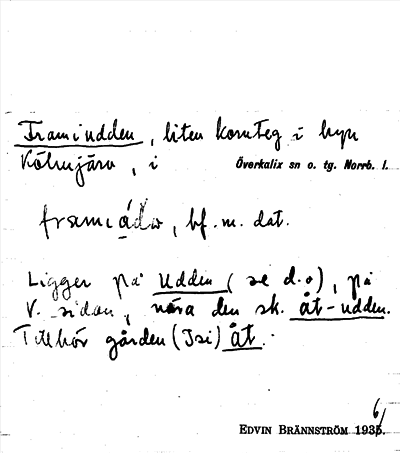 Framiudden, liten kornteg i byn
Kölmjärv, i Överkalix sn o. tg. Norrb. l.
bf. m. dat.
Ligger på Udden (se d. o), på
V. sidan, nära den sk. åt-udden.
Tillhör gården (Isi) åt.
6/
EDVIN BRÄNNSTRÖM 1935.